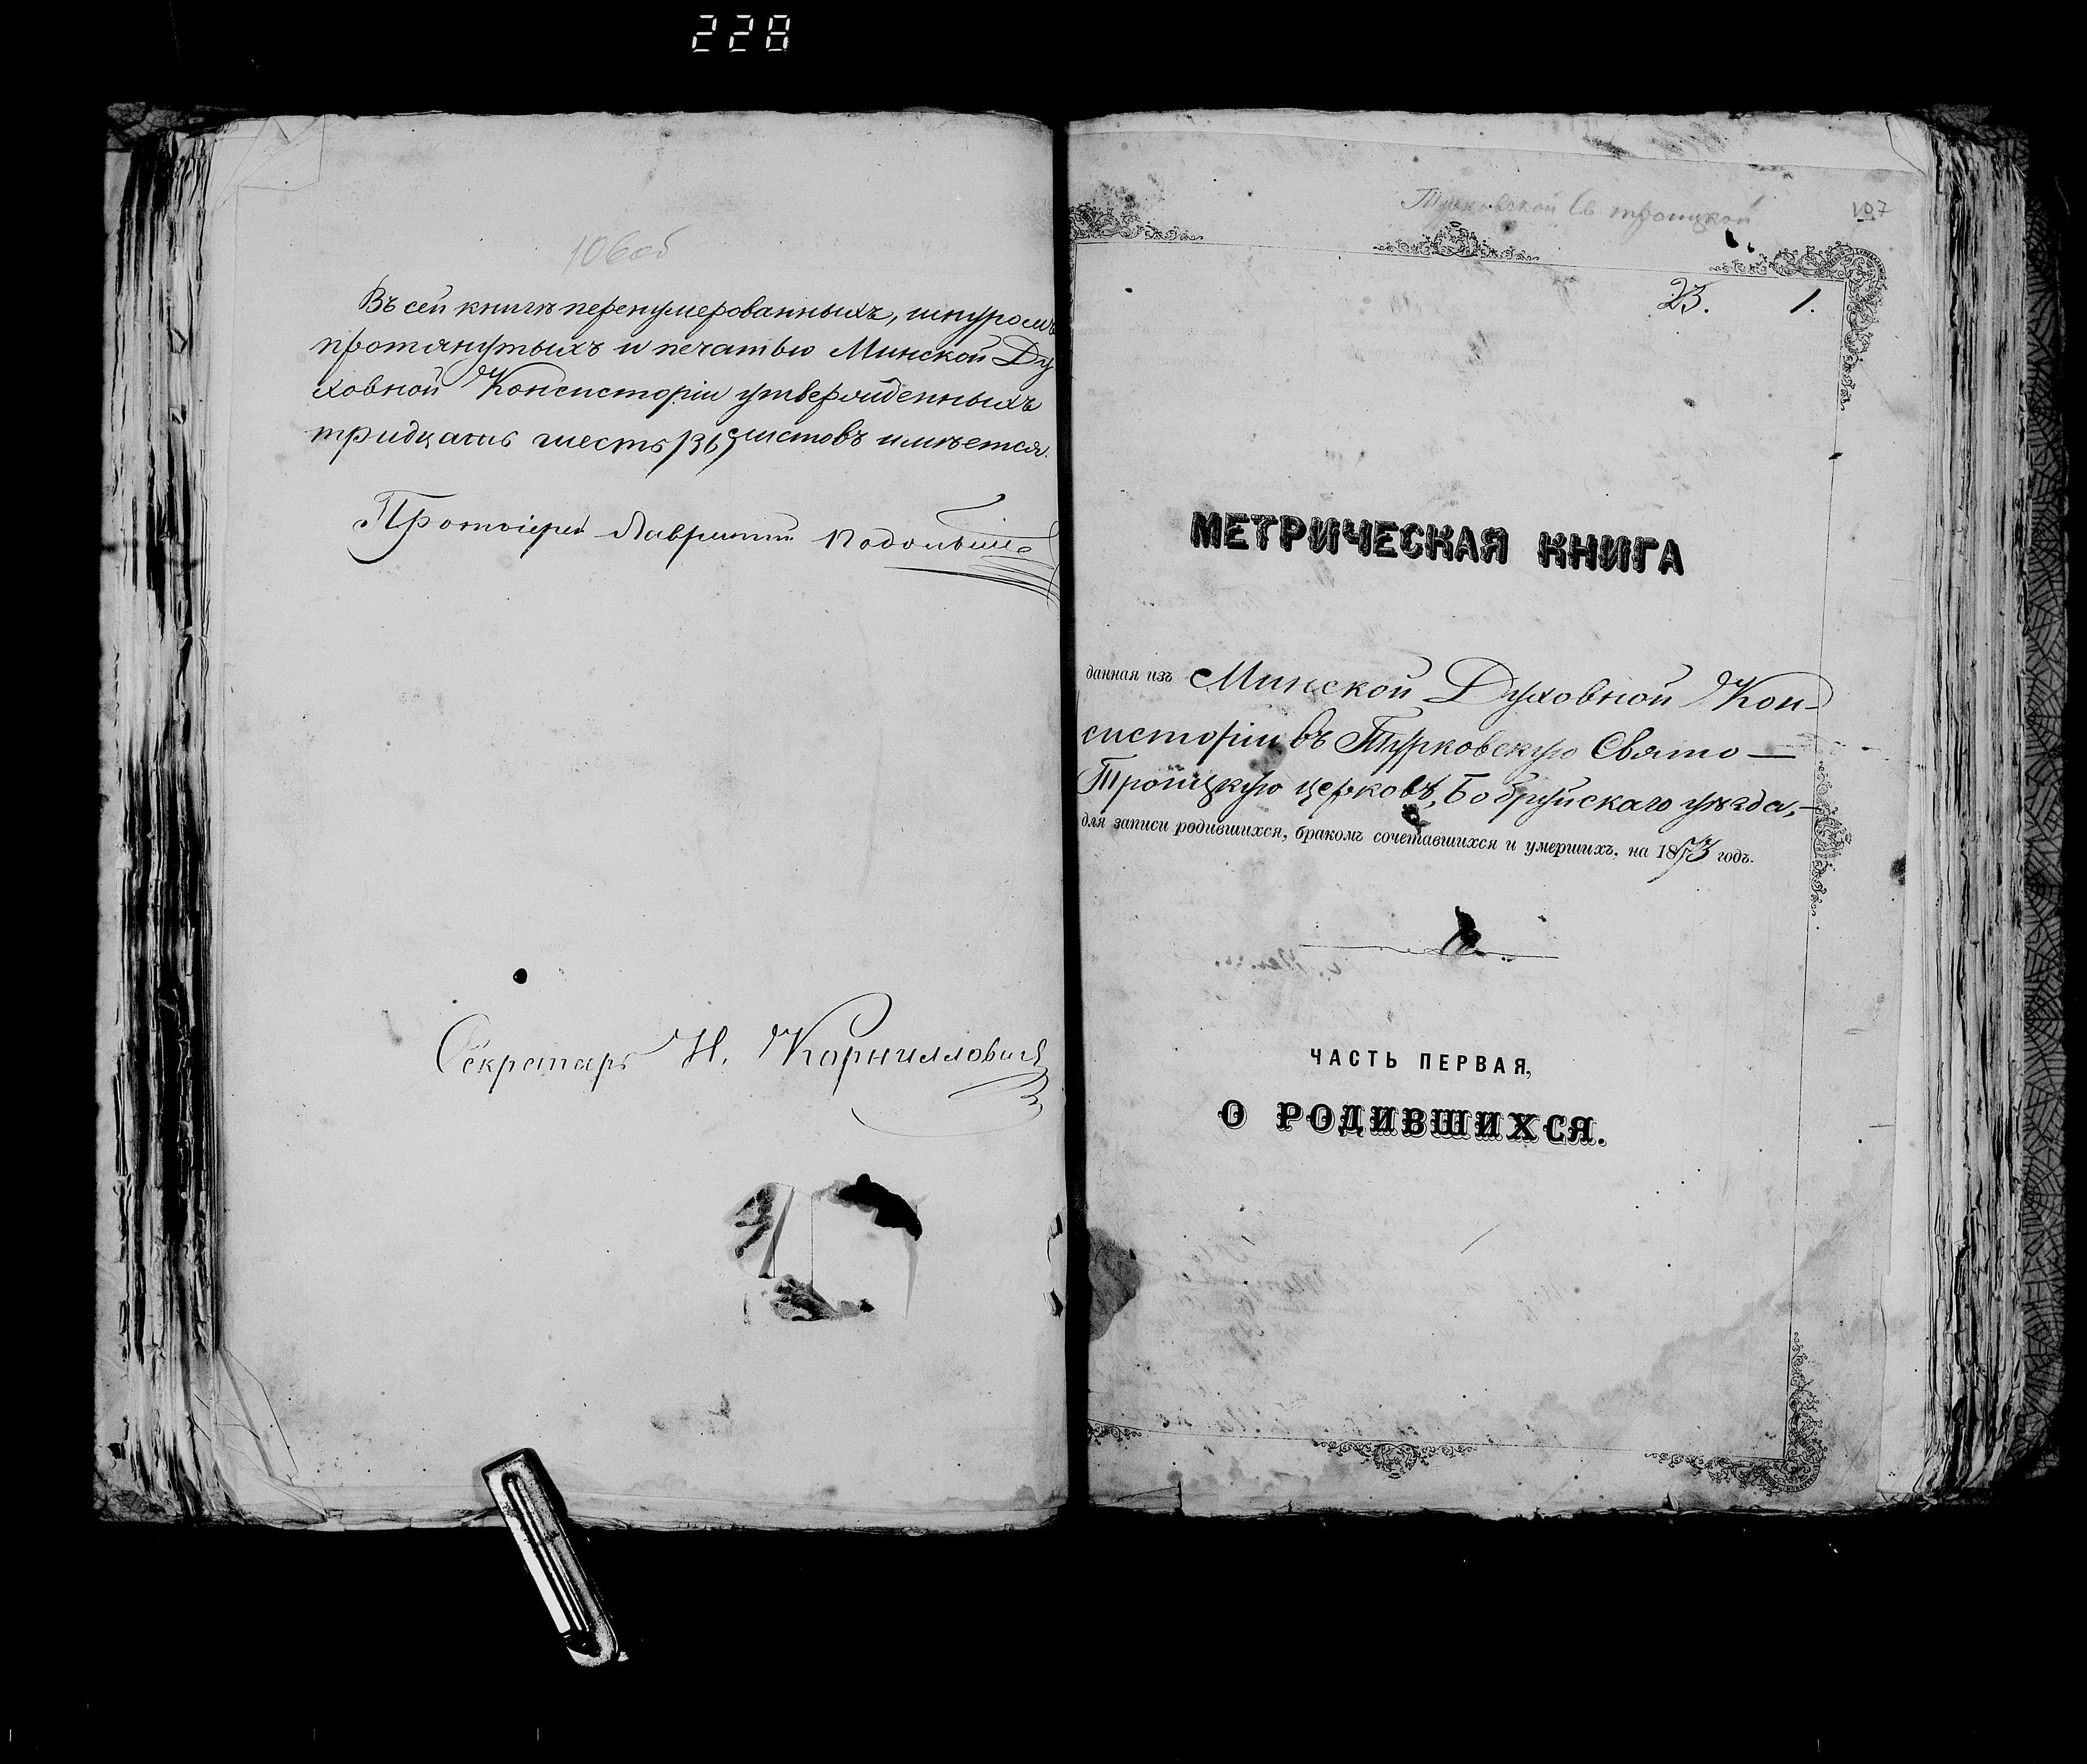 228
106об
Въ сей книгѣ перенумерованныхъ, шнуромъ
протянутыхъ и печатью Минской Ду
ховной Консисторіи утвержденныхъ
тридцать шесть /36/ листовъ имѣется.
Протоіерей Лаврентій
Секретарь Н. Корниллович
Турковской Св троицкой
107
23. 1.
МЕТРИЧЕСКАЯ КНИГА
данная изъ Минской Духовной Кон-
систоріи въ Турковскую Свято—
Троицкую церковь, Бобруйскаго уѣзда,—
для записи родившихся, бракомъ сочетавшихся и умершихъ, на 1873 годъ.
ЧАСТЬ ПЕРВАЯ,
О РОДИВШИХСЯ.